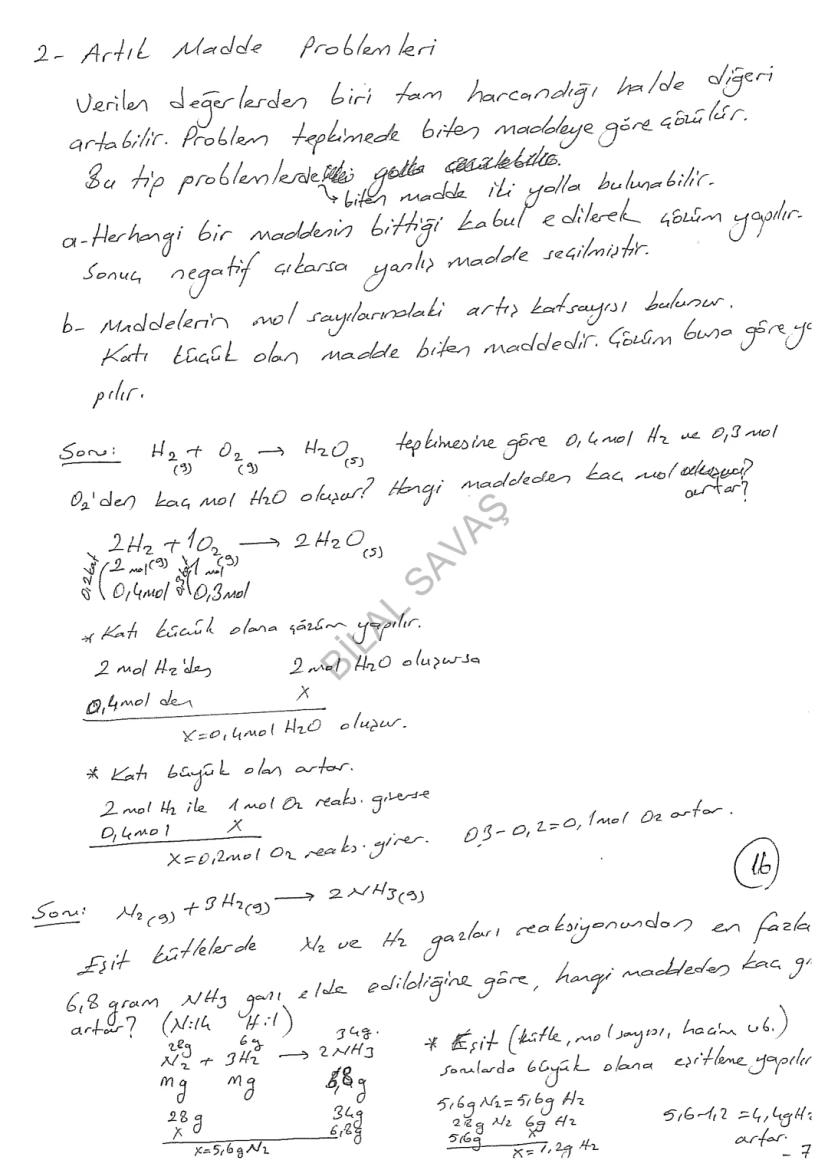 2- Artık Madde Problemleri
Verilen değerlerden biri tam harcandığı halde diğeri
artabilir. Problem tepkimede biten maddeye göre çözülür.
Bu tip problemlerde
↳ biten madde iki yolla bulunabilir.
a- Herhangi bir maddenin bittiği kabul edilerek çözüm yapılır.
Sonuç negatif çıkarsa yanlış madde seçilmiştir.
b- Maddelerin mol sayılarındaki artış katsayısı bulunur.
Katı küçük olan madde biten maddedir. Çözüm buna göre ya
pılır.
Soru: H2(g) + O2(g) → H2O(s) tepkimesine göre 0,4 mol H2 ve 0,3 mol
O2'den kaç mol H2O oluşur? Hangi maddeden kaç mol
artar?
2H2 + 1O2 → 2H2O(s)
0,2 kat 2 mol (g) 0,3 kat 1 mol (g)
0,4mol 0,3mol
* Katı küçük olana çözüm yapılır.
2 mol H2'den 2 mol H2O oluşursa
0,4mol den X
X=0,4mol H2O oluşur.
* Katı büyük olan artar.
2 mol H2 ile 1 mol O2 reaks. girerse
0,4mol X
X=0,2mol O2 reaks. girer. 0,3-0,2=0,1mol O2 artar.
16
Soru: N2(g) + 3H2(g) → 2NH3(g)
Eşit kütlelerde N2 ve H2 gazları reaksiyonundan en fazla
6,8 gram NH3 gazı elde edildiğine göre, hangi maddeden kaç g
artar? (N:14 H:1)
28g 6g 34g.
N2 + 3H2 → 2NH3
mg mg 6,8g
28g 34g
x 6,8g
x=5,6g N2
* Eşit (kütle, mol sayısı, hacim vb.)
sorularda büyük olana eşitleme yapılır
5,6g N2=5,6g H2
28g N2 6g H2
5,6g x
x=1,2g H2
5,6-1,2=4,4gH2
artar.
- 7
BİLAL SAVAŞ